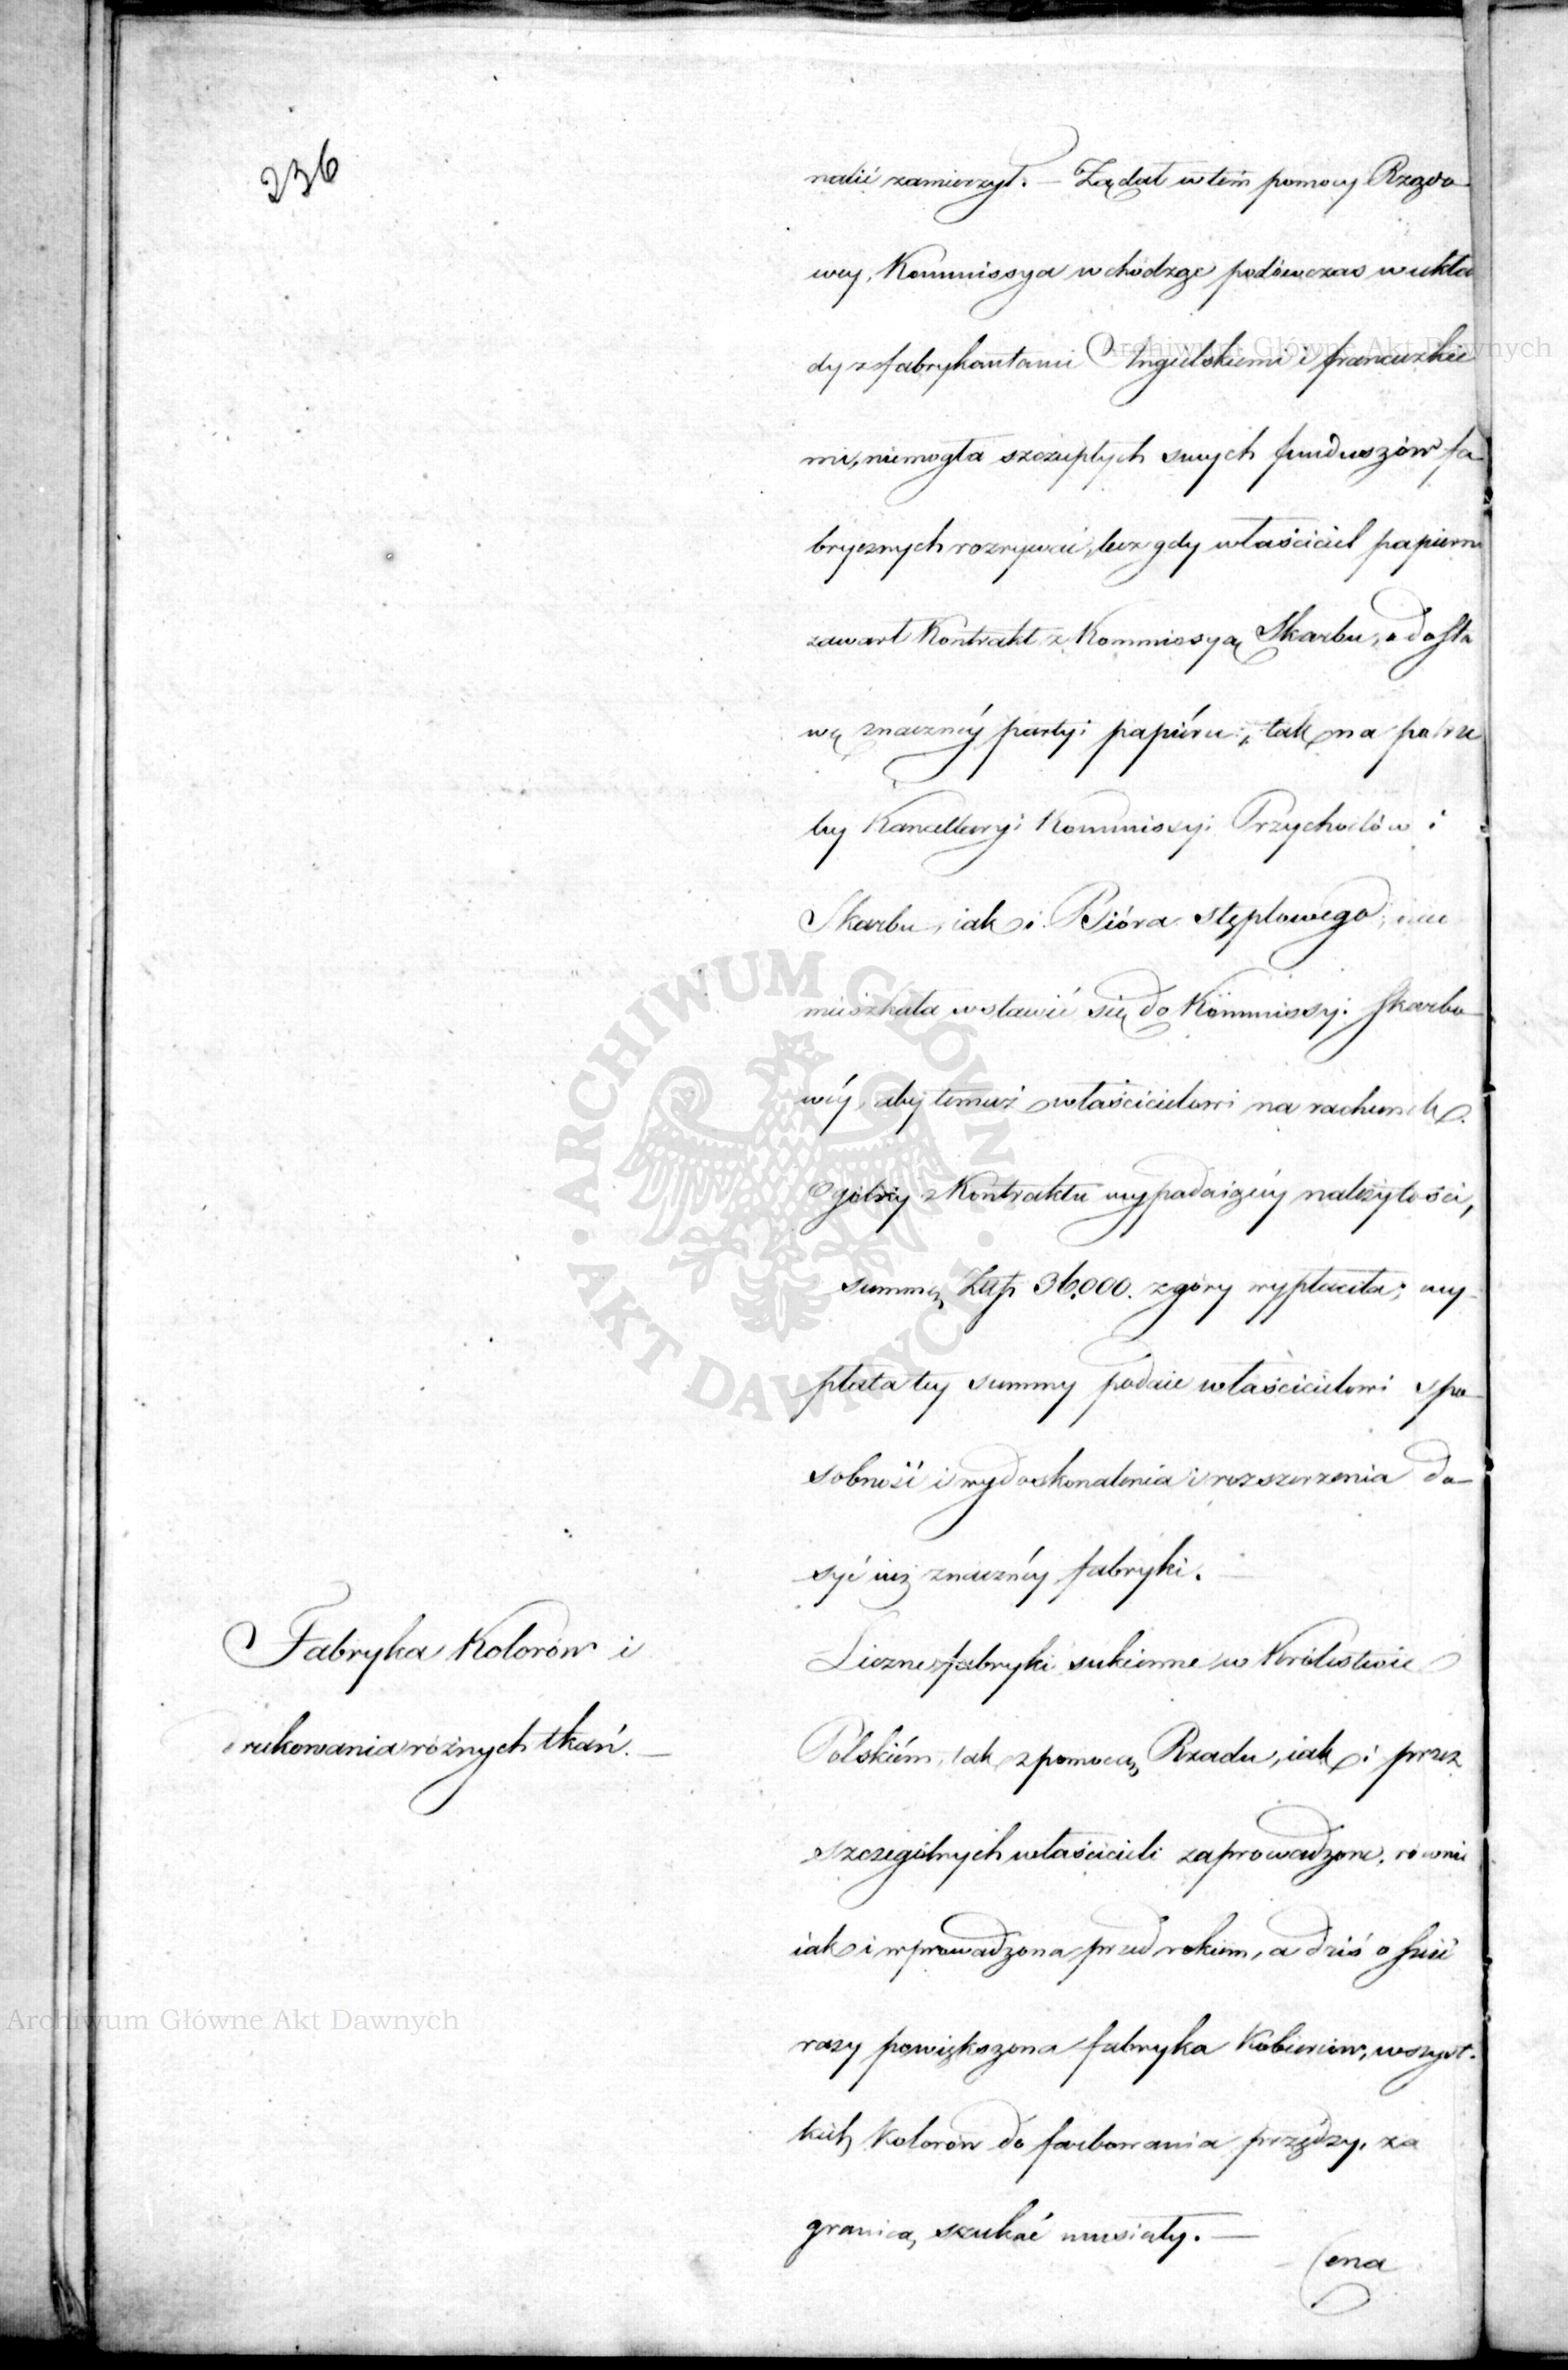 236
nalić zamierzył. — Żądał w tém pomocy Rządo-
wey, Kommissya wchodząc podówczas w ukła
dy z fabrykantami Angielskiemi i francuzkie
mi, niemogła szczupłych swych funduszów fa-
brycznych rozrywać, lecz gdy właściciel papierni
zawarł Kontrakt z Kommissyą Skarbu, o dosta
wę znacznéy partyi papiéru, tak na potrze
by Kancellaryi Kommissyi Przychodów i
Skarbu, iak i Bióra stęplowego, nie
mieszkała wstawić się do Kommissyi Skarbo-
wéy, aby temuż właścicielowi na rachunek
Ogólnéy z Kontraktu wypadaiącéy należytości,
summę Złtp 36,000. z góry wypłaciła; wy-
płata tey summy podaie właścicielowi spo-
sobność i wydoskonalenia i rozszerzenia do-
syć iuż znacznéy fabryki. —
Fabryka Kolorów i
drukowania różnych tkań. —
Liczne fabryki sukienne w Królestwie
Polskiém, tak z pomocą Rządu, iak i przez
szczególnych właścicieli zaprowadzone, równie
iak i wprowadzona przed rokiem, a dziś o sześć
razy powiększona fabryka Kobierców, wszyst-
kich Kolorów do farbowania przędzy, za
granicą szukać musiały. —
Cena
Archiwum Główne Akt Dawnych
Archiwum Główne Akt Dawnych
ARCHIWUM GŁÓWNE AKT DAWNYCH